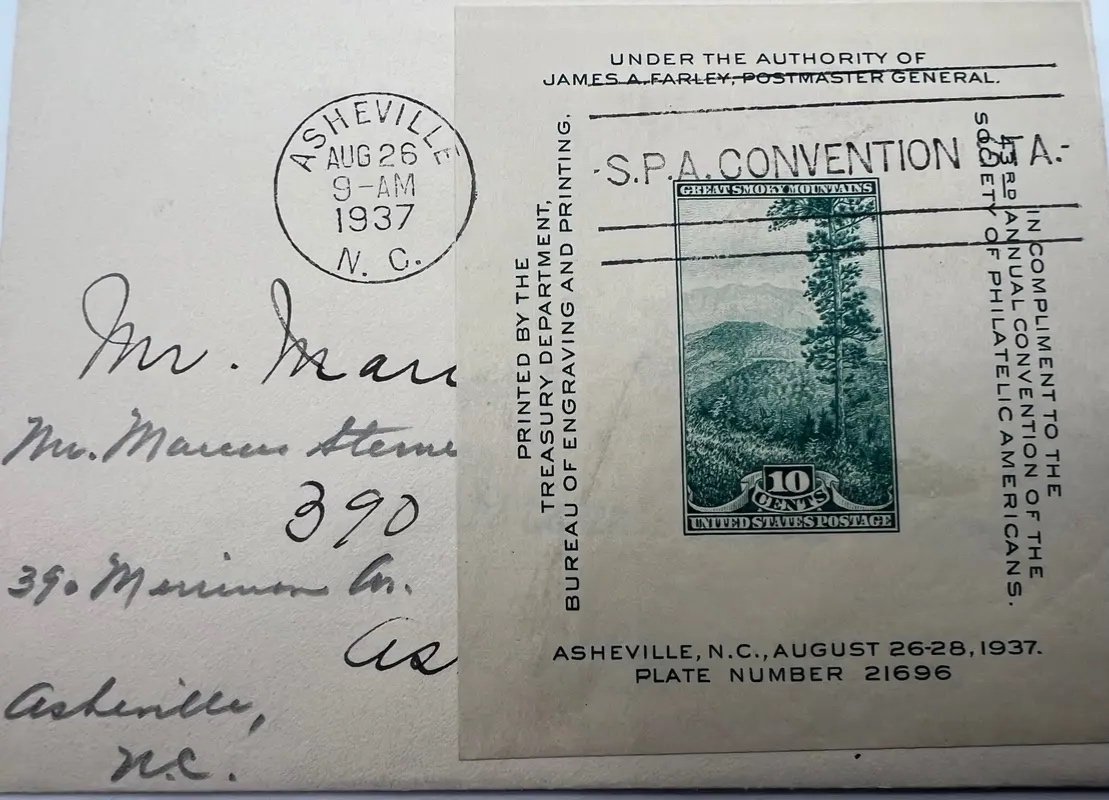 ASHEVILLE
AUG 26
9-AM
1937
N. C.
UNDER THE AUTHORITY OF
JAMES A. FARLEY, POSTMASTER GENERAL.
PRINTED BY THE
TREASURY DEPARTMENT,
BUREAU OF ENGRAVING AND PRINTING.
-S.P.A. CONVENTION STA.-
GREAT SMOKY MOUNTAINS
10
CENTS
UNITED STATES POSTAGE
IN COMPLIMENT TO THE
43RD ANNUAL CONVENTION OF THE
SOCIETY OF PHILATELIC AMERICANS.
ASHEVILLE, N.C., AUGUST 26-28, 1937.
PLATE NUMBER 21696
Mr.
Mr. Marcus Sterne
390
390 Merrimon Av.
As
Asheville,
N.C.